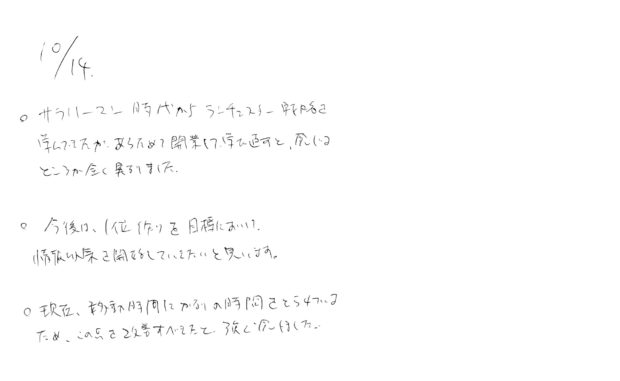 10/14.
○ サラリーマン時代からランチェスター戦略を
学んでてたが、あらためて開業して学び直すと、感じる
ところが全く異なりました。
○ 今後は、1位作りを目標において、
情報収集を開始していきたいと思います。
○ 現在、移動時間にかなりの時間をとられている
ため、この点を改善すべきだと強く感じました。